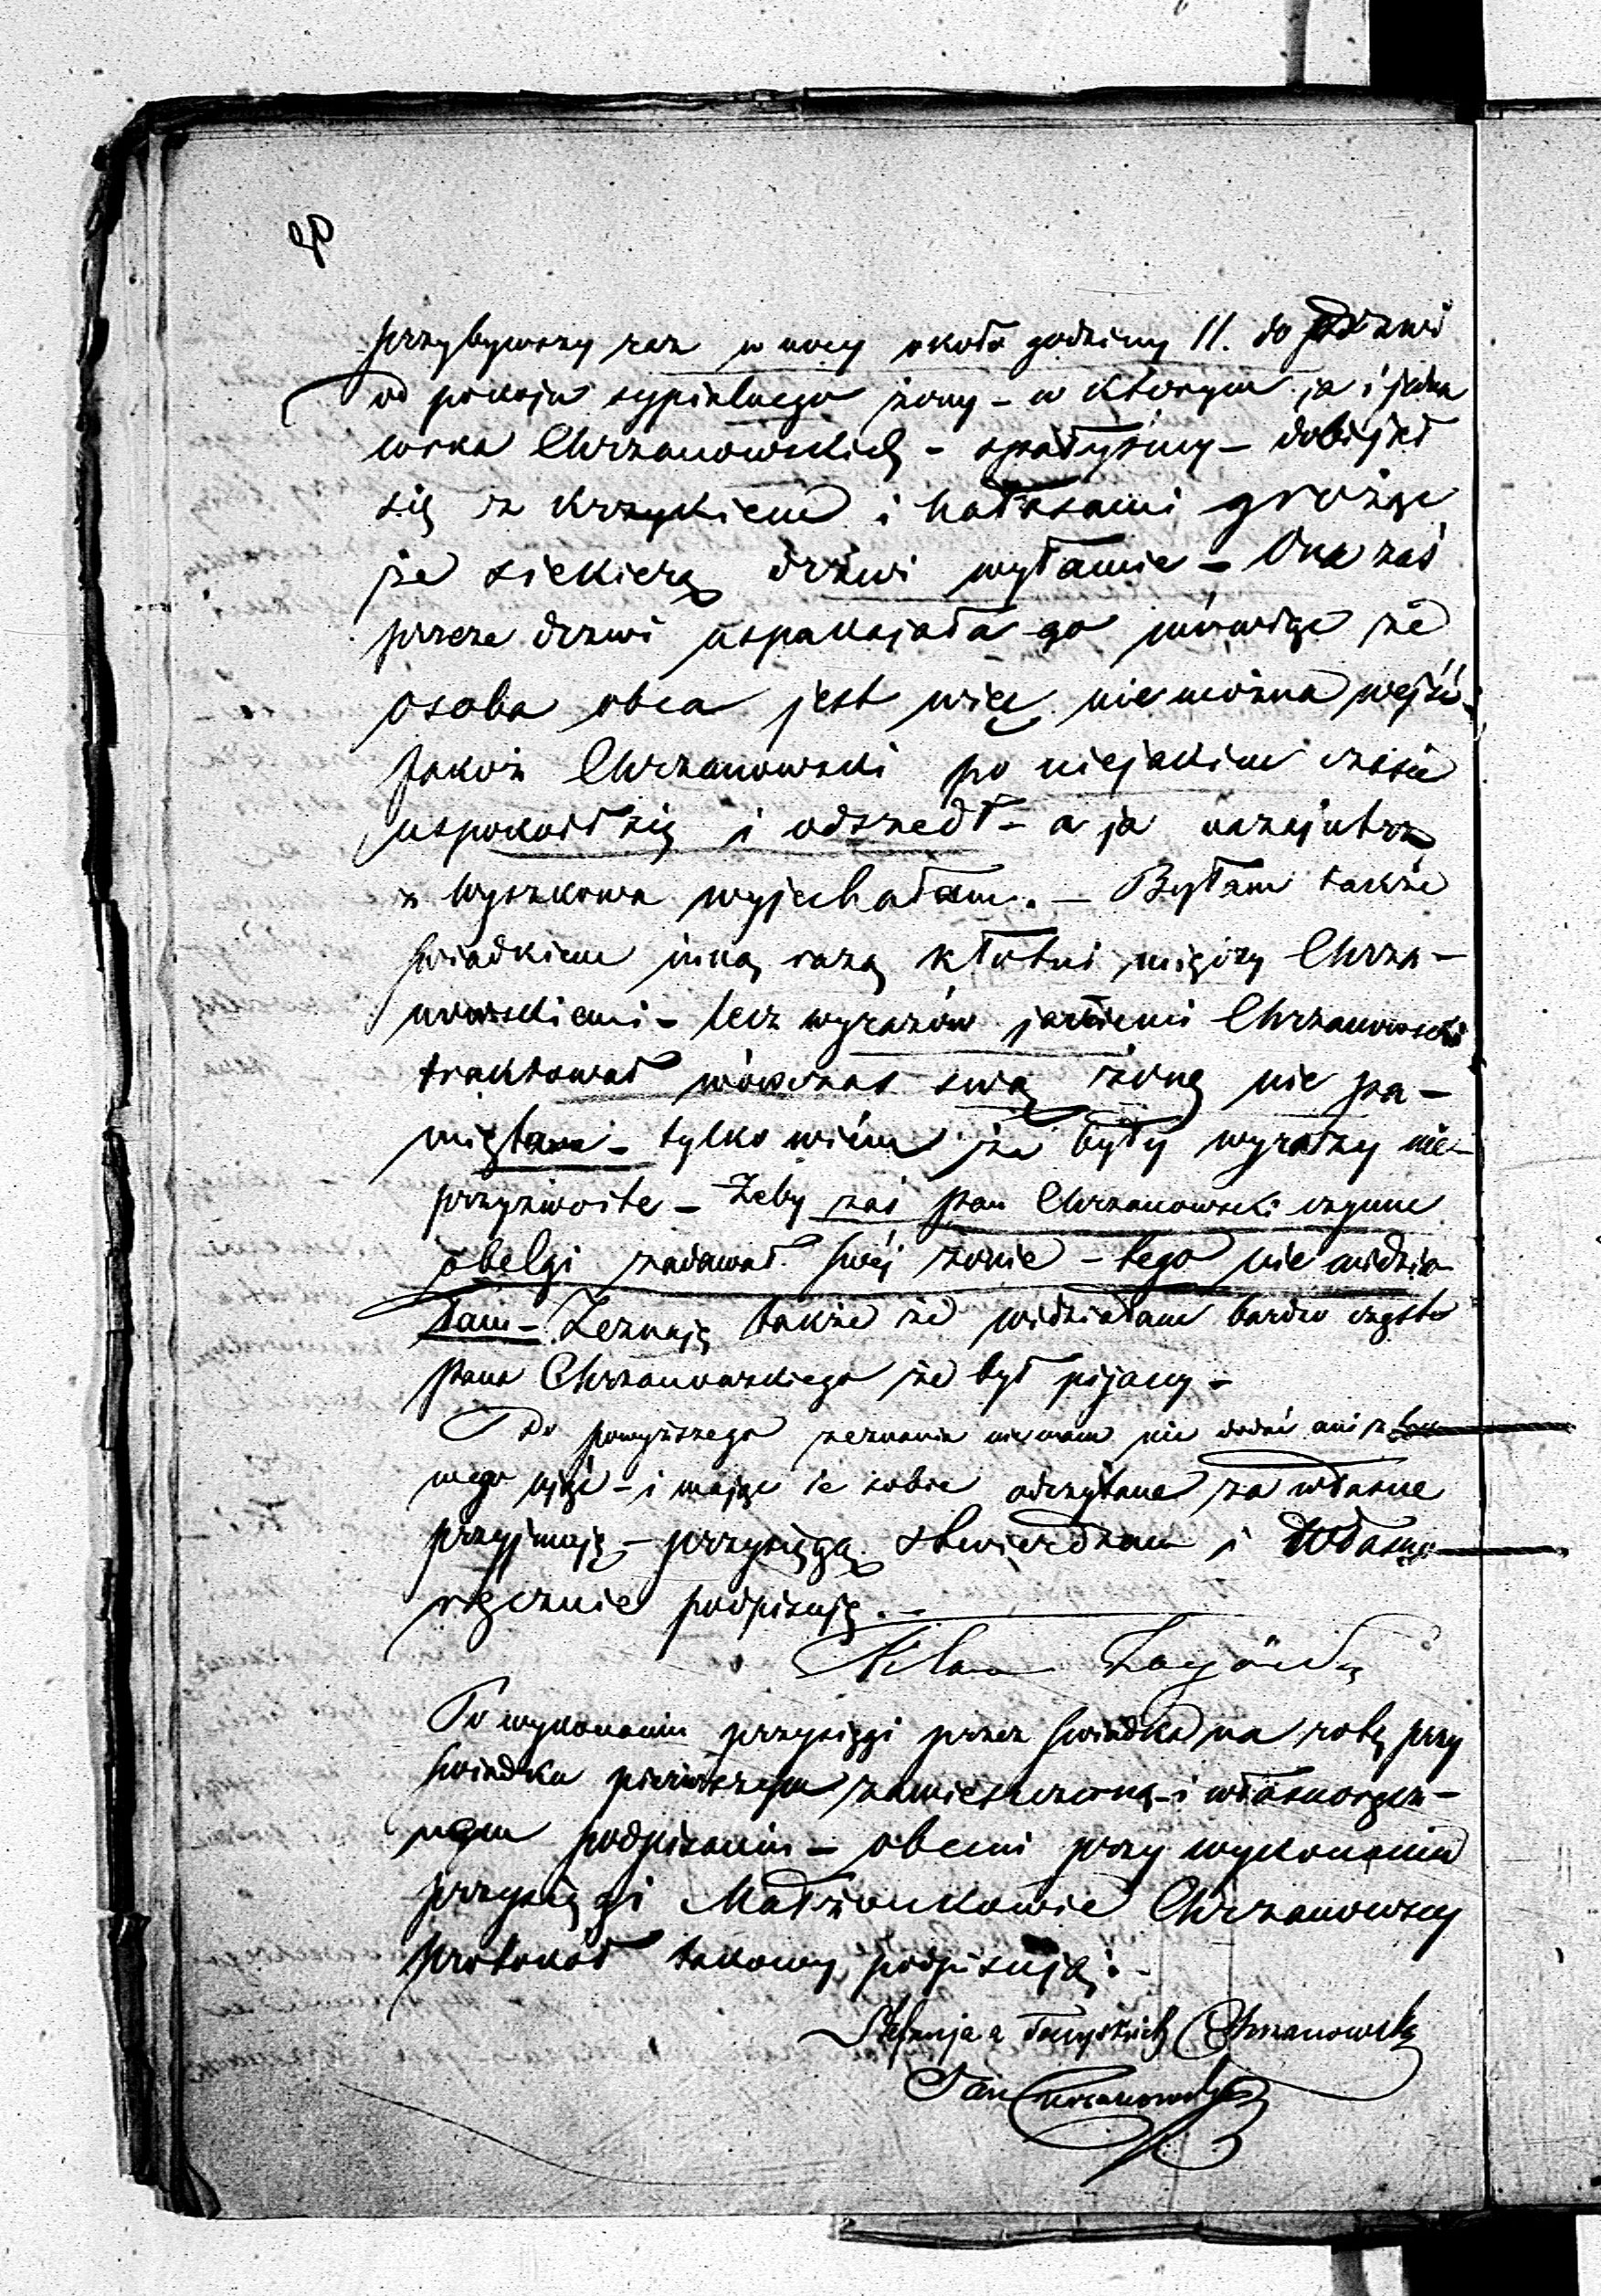 przybywszy raz w nocy około godziny 11. do drzwi
od pokoju sypialnego żony – w ktorym ja i
córka Chrzanowskich – spałyśmy – dobijał
się z krzykiem i hałasami grożąc
że siekierą drzwi wyłamie – Ona zaś
przeze drzwi uspakajała go mówiąc że
osoba obca jest więc niemożna wejść –
jakoż Chrzanowski po niejakim czasie
uspokoił się i odszedł – a ja nazajutrz
z Wyszkowa wyjechałam. – Byłam także
świadkiem inną razą kłótni między Chrza–
nowskiemi – lecz wyrazów jakiemi Chrzanowski
traktował wówczas swą żonę nie pa–
miętam – tylko wiém że były wyrazy nie–
przyzwoite – Żeby zaś pan Chrzanowski czynne
obelgi zadawał swéj żonie – tego nie widzia
łam – Zeznaję także że widziałam bardzo często
pana Chrzanowskiego że był pijany –
Do powyższego zeznania niemam nic dodać ani z
nego ująć – i mając je sobie odczytane za własne
przyjmuję – przysięgą stwierdzam i Własno
ręcznie podpisuję. –
Po wykonaniu przysięgi przez świadka na rotę przy
świadku pierwszym zamieszczoną – i własnoręcz–
nym podpisaniu – obecni przy wykonaniu
przysięgi Małżonkowie Chrzanowscy
protokół takowy podpisują. –
Stefanja z Chrzanowska
Jan Chrzanowski